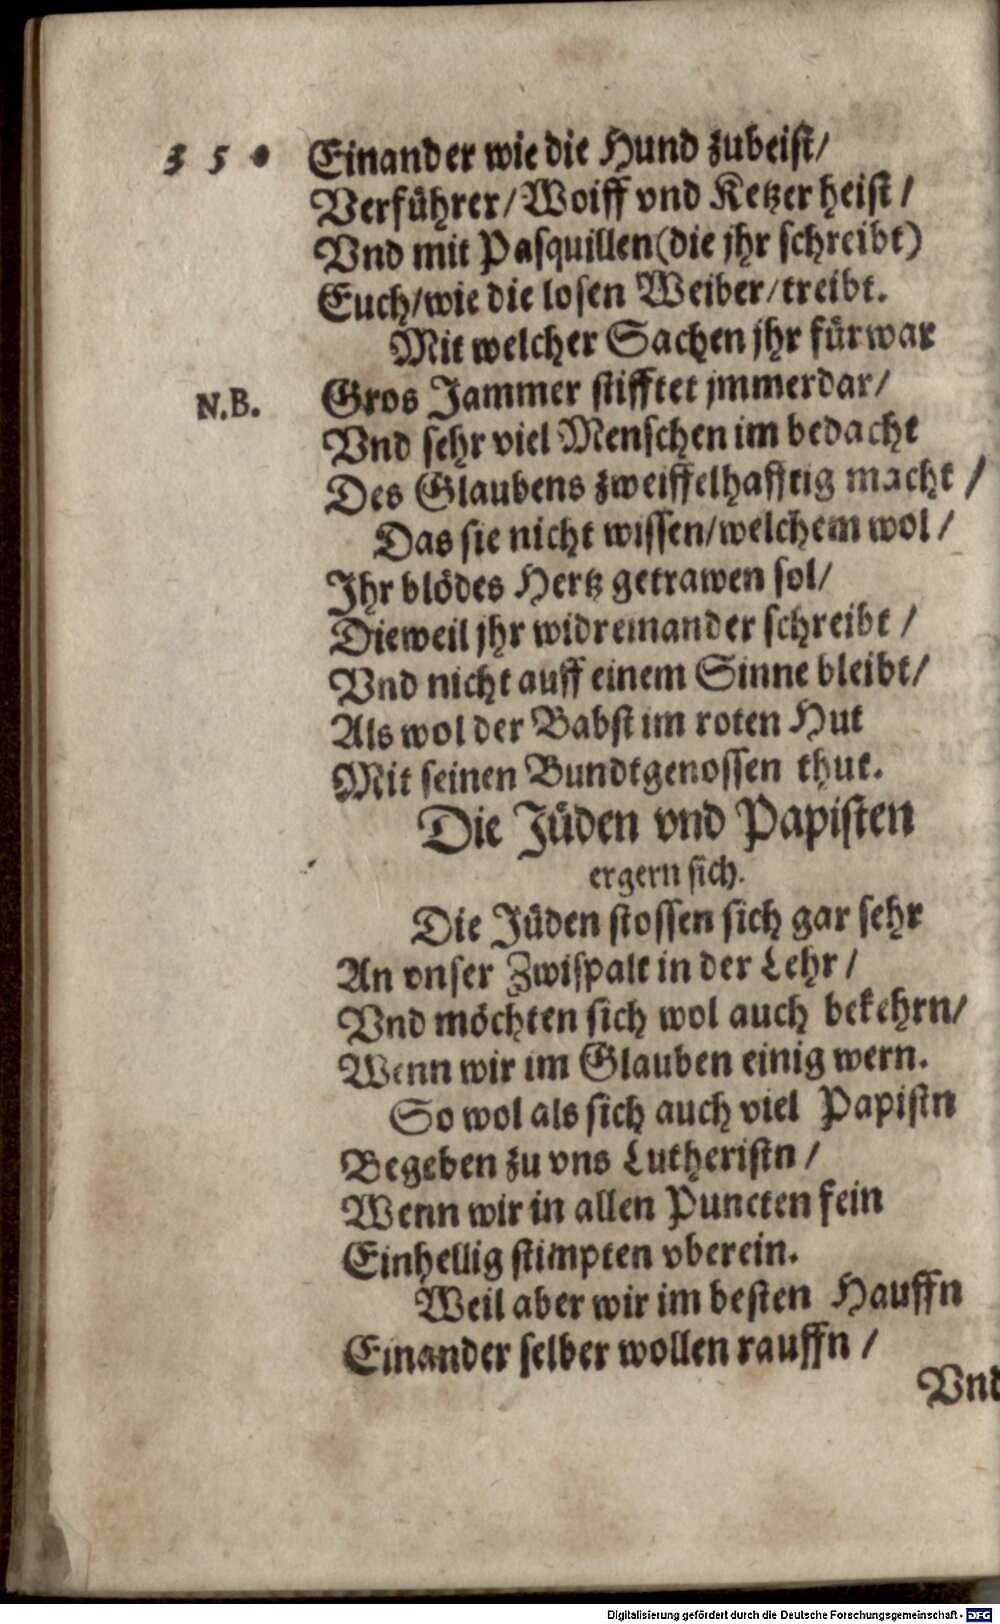 350 Einander wie die Hund zubeist/
Verführer/Wolff vnd Ketzer heist/
Vnd mit Pasquillen(die jhr schreibt)
Euch/wie die losen Weiber/treibt.
Mit welcher Sachen jhr fürwar
N.B. Gros Jammer stifftet jmmerdar/
Vnd sehr viel Menschen im bedacht
Des Glaubens zweiffelhafftig macht/
Das sie nicht wissen/welchem wol/
Ihr blödes Hertz getrawen sol/
Dieweil jhr widreinander schreibt/
Vnd nicht auff einem Sinne bleibt/
Als wol der Babst im roten Hut
Mit seinen Bundtgenossen thut.
Die Jüden vnd Papisten
ergern sich.
Die Jüden stossen sich gar sehr
An vnser Zwispalt in der Lehr/
Vnd möchten sich wol auch bekehrn/
Wenn wir im Glauben einig wern.
So wol als sich auch viel Papistn
Begeben zu vns Lutheristn/
Wenn wir in allen Puncten fein
Einhellig stimpten vberein.
Weil aber wir im besten Hauffn
Einander selber wollen rauffn/
Vnd
Digitalisierung gefördert durch die Deutsche Forschungsgemeinschaft - DFG